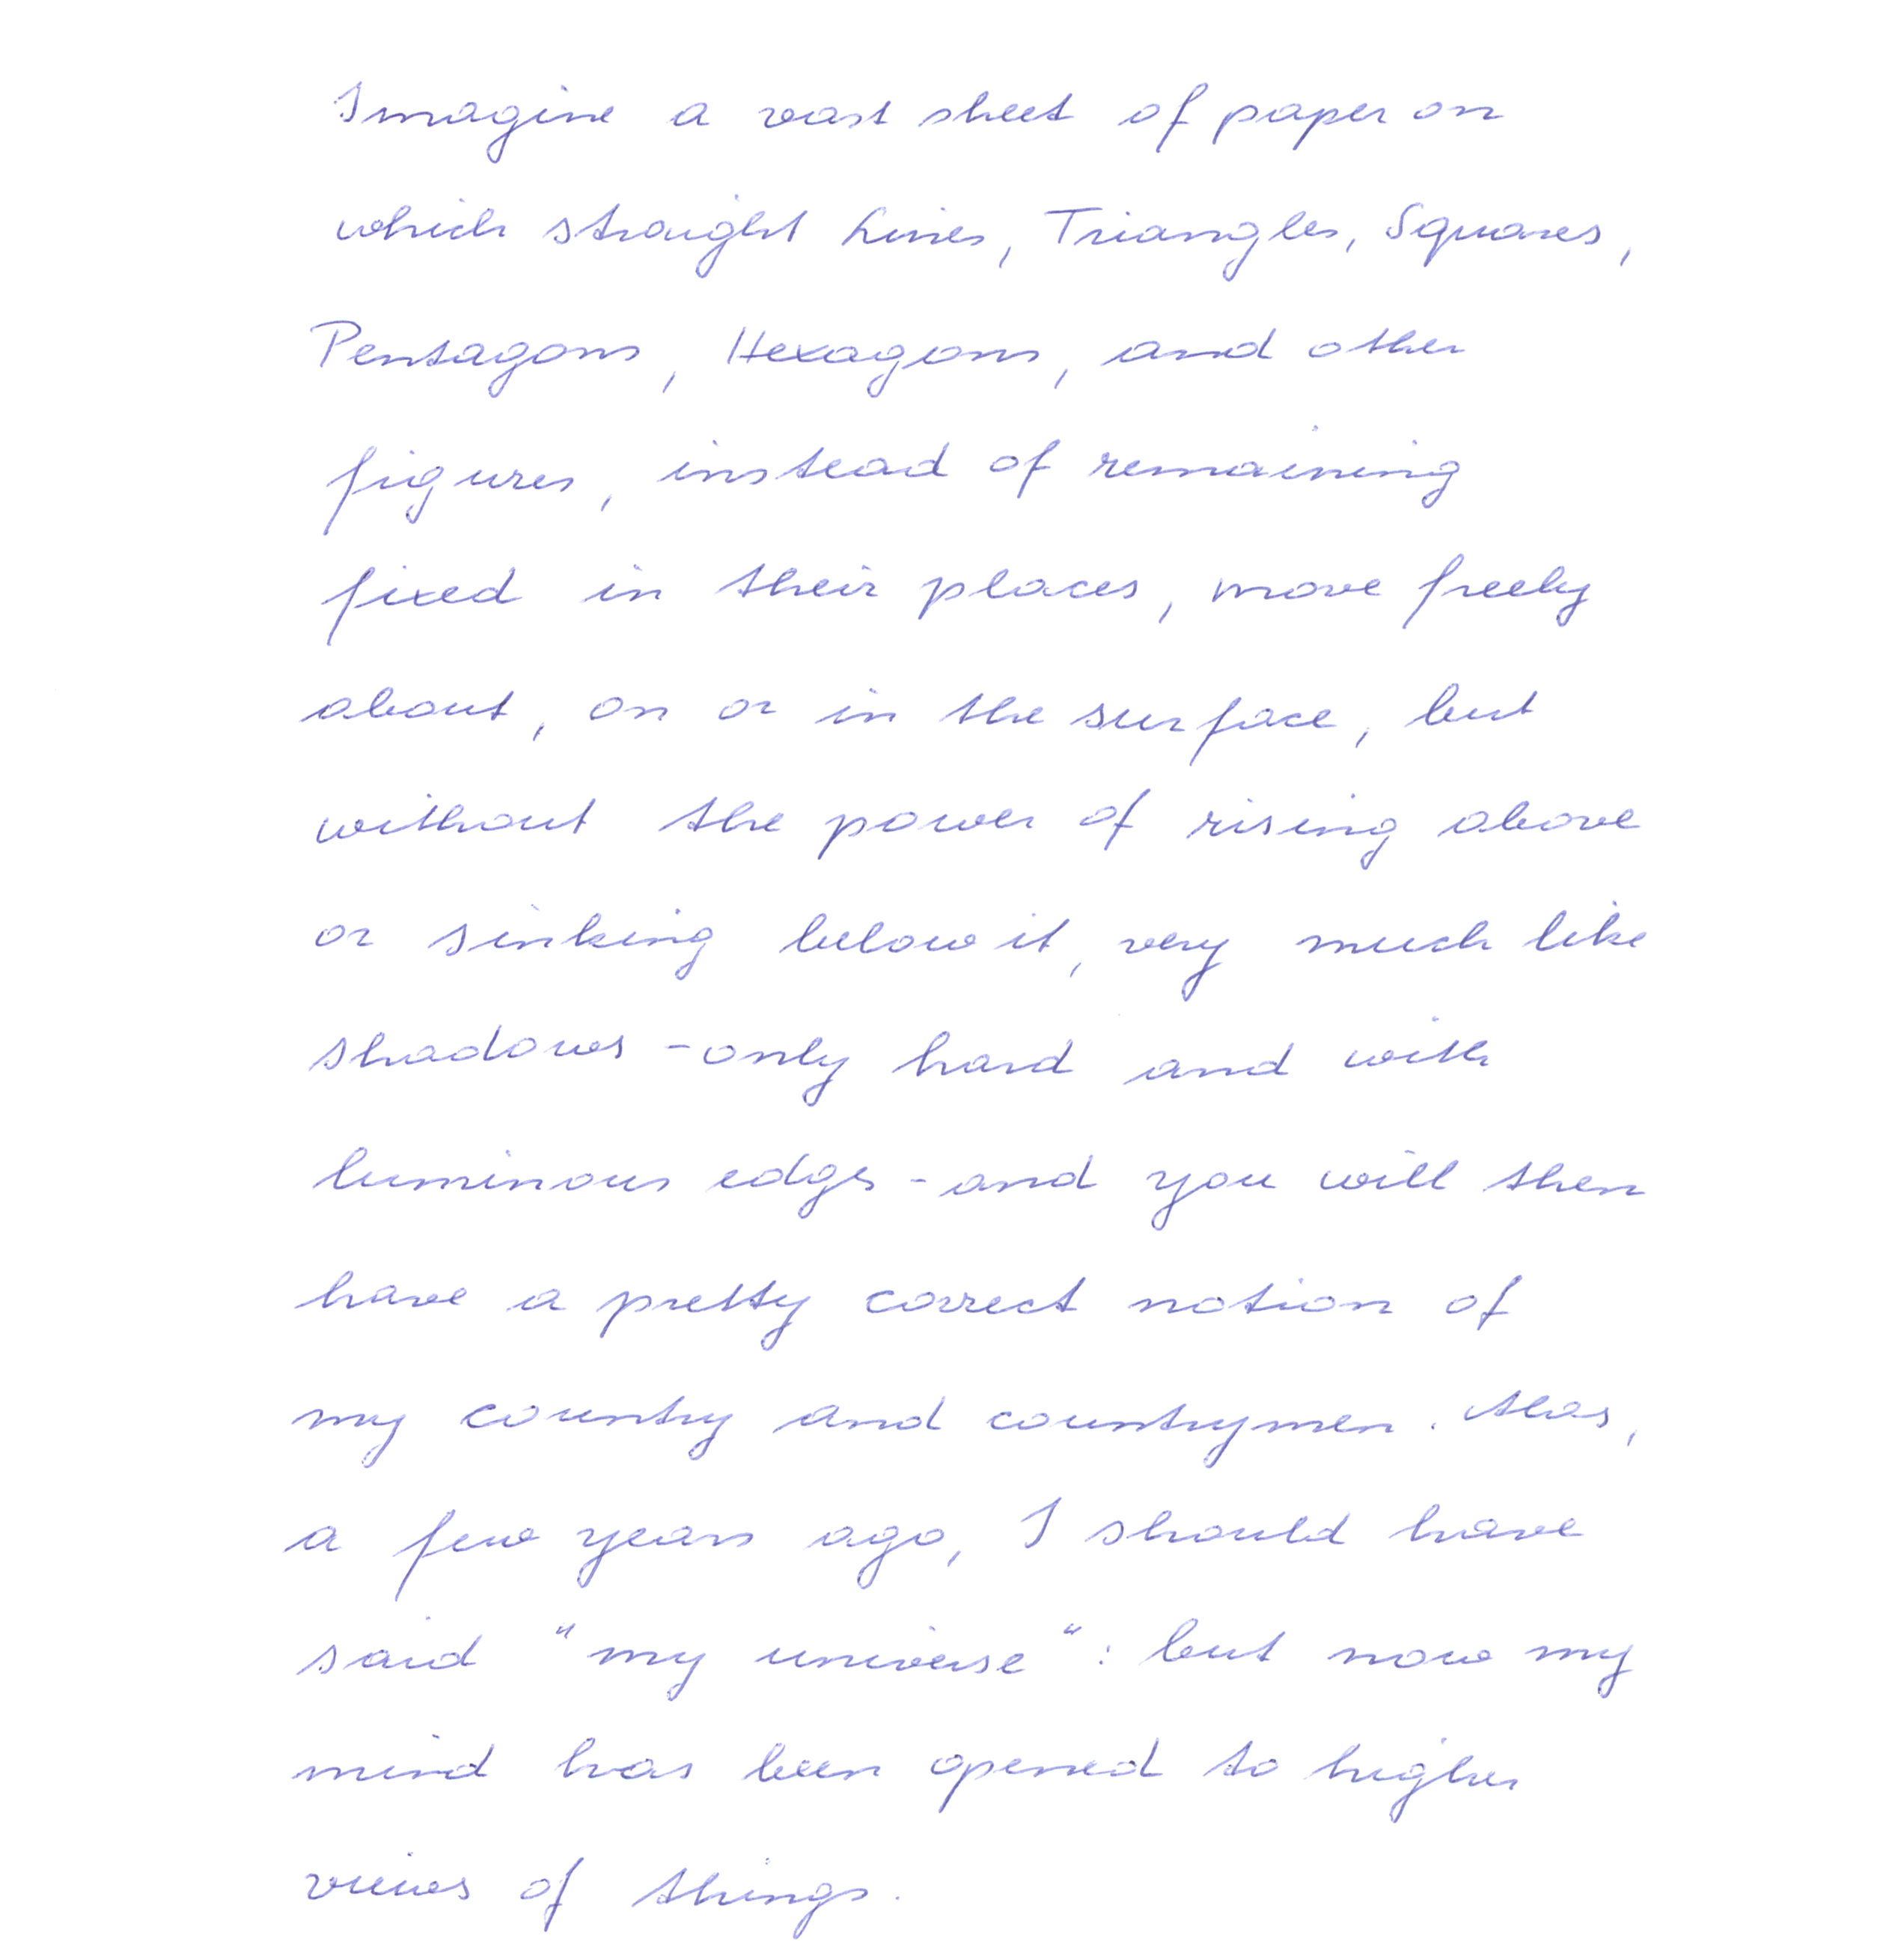 Imagine a vast sheet of paper on
which straight Lines, Triangles, Squares,
Pentagons, Hexagons, and other
figures, instead of remaining
fixed in their places, move freely
about, on or in the surface, but
without the power of rising above
or sinking below it, very much like
shadows - only hard and with
luminous edges - and you will then
have a pretty correct notion of
my country and countrymen. Alas,
a few years ago, I should have
said "my universe": but now my
mind has been opened to higher
views of things.